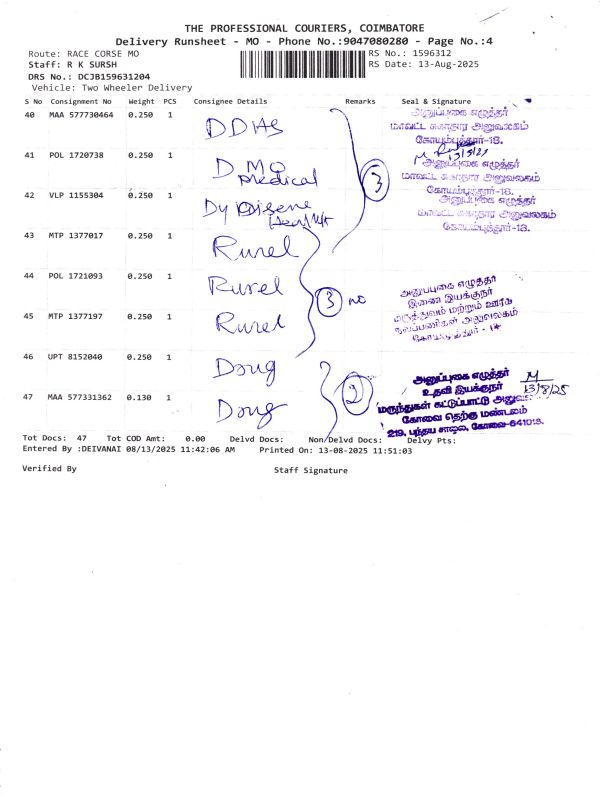 THE PROFESSIONAL COURIERS, COIMBATORE
Delivery Runsheet - MO - Phone No.:9047080280 - Page No.:4
Route: RACE CORSE MO
RS No.: 1596312
Staff: R K SURSH
RS Date: 13-Aug-2025
DRS No.: DCJB159631204
Vehicle: Two Wheeler Delivery
S No Consignment No Weight PCS Consignee Details Remarks Seal & Signature
40 MAA 577730464 0.250 1 DDHS
அனுப்புகை எழுத்தர்
மாவட்ட சுகாதார அலுவலகம்
கோயம்புத்தூர்-18.
41 POL 1720738 0.250 1 D MO
medical
3
13/8/25
அனுப்புகை எழுத்தர்
மாவட்ட சுகாதார அலுவலகம்
கோயம்புத்தூர்-18.
42 VLP 1155304 0.250 1 Dy
அனுப்புகை எழுத்தர்
மாவட்ட சுகாதார அலுவலகம்
கோயம்புத்தூர்-18.
43 MTP 1377017 0.250 1 Rurel
44 POL 1721093 0.250 1 Rurel
3 no
அனுப்புகை எழுத்தர்
இணை இயக்குநர்
மருத்துவம் மற்றும் ஊரக
நலப்பணிகள் அலுவலகம்
45 MTP 1377197 0.250 1 Rurel
46 UPT 8152040 0.250 1 Doug
2
அனுப்புகை எழுத்தர்
உதவி இயக்குநர்
மருந்துகள் கட்டுப்பாட்டு
கோவை தெற்கு மண்டலம்
219, பந்தய சாலை, கோவை-641018.
M
13/8/25
47 MAA 577331362 0.130 1 Doug
Tot Docs: 47 Tot COD Amt: 0.00 Delvd Docs: Non/Delvd Docs: Delvy Pts:
Entered By :DEIVANAI 08/13/2025 11:42:06 AM Printed On: 13-08-2025 11:51:03
Verified By Staff Signature